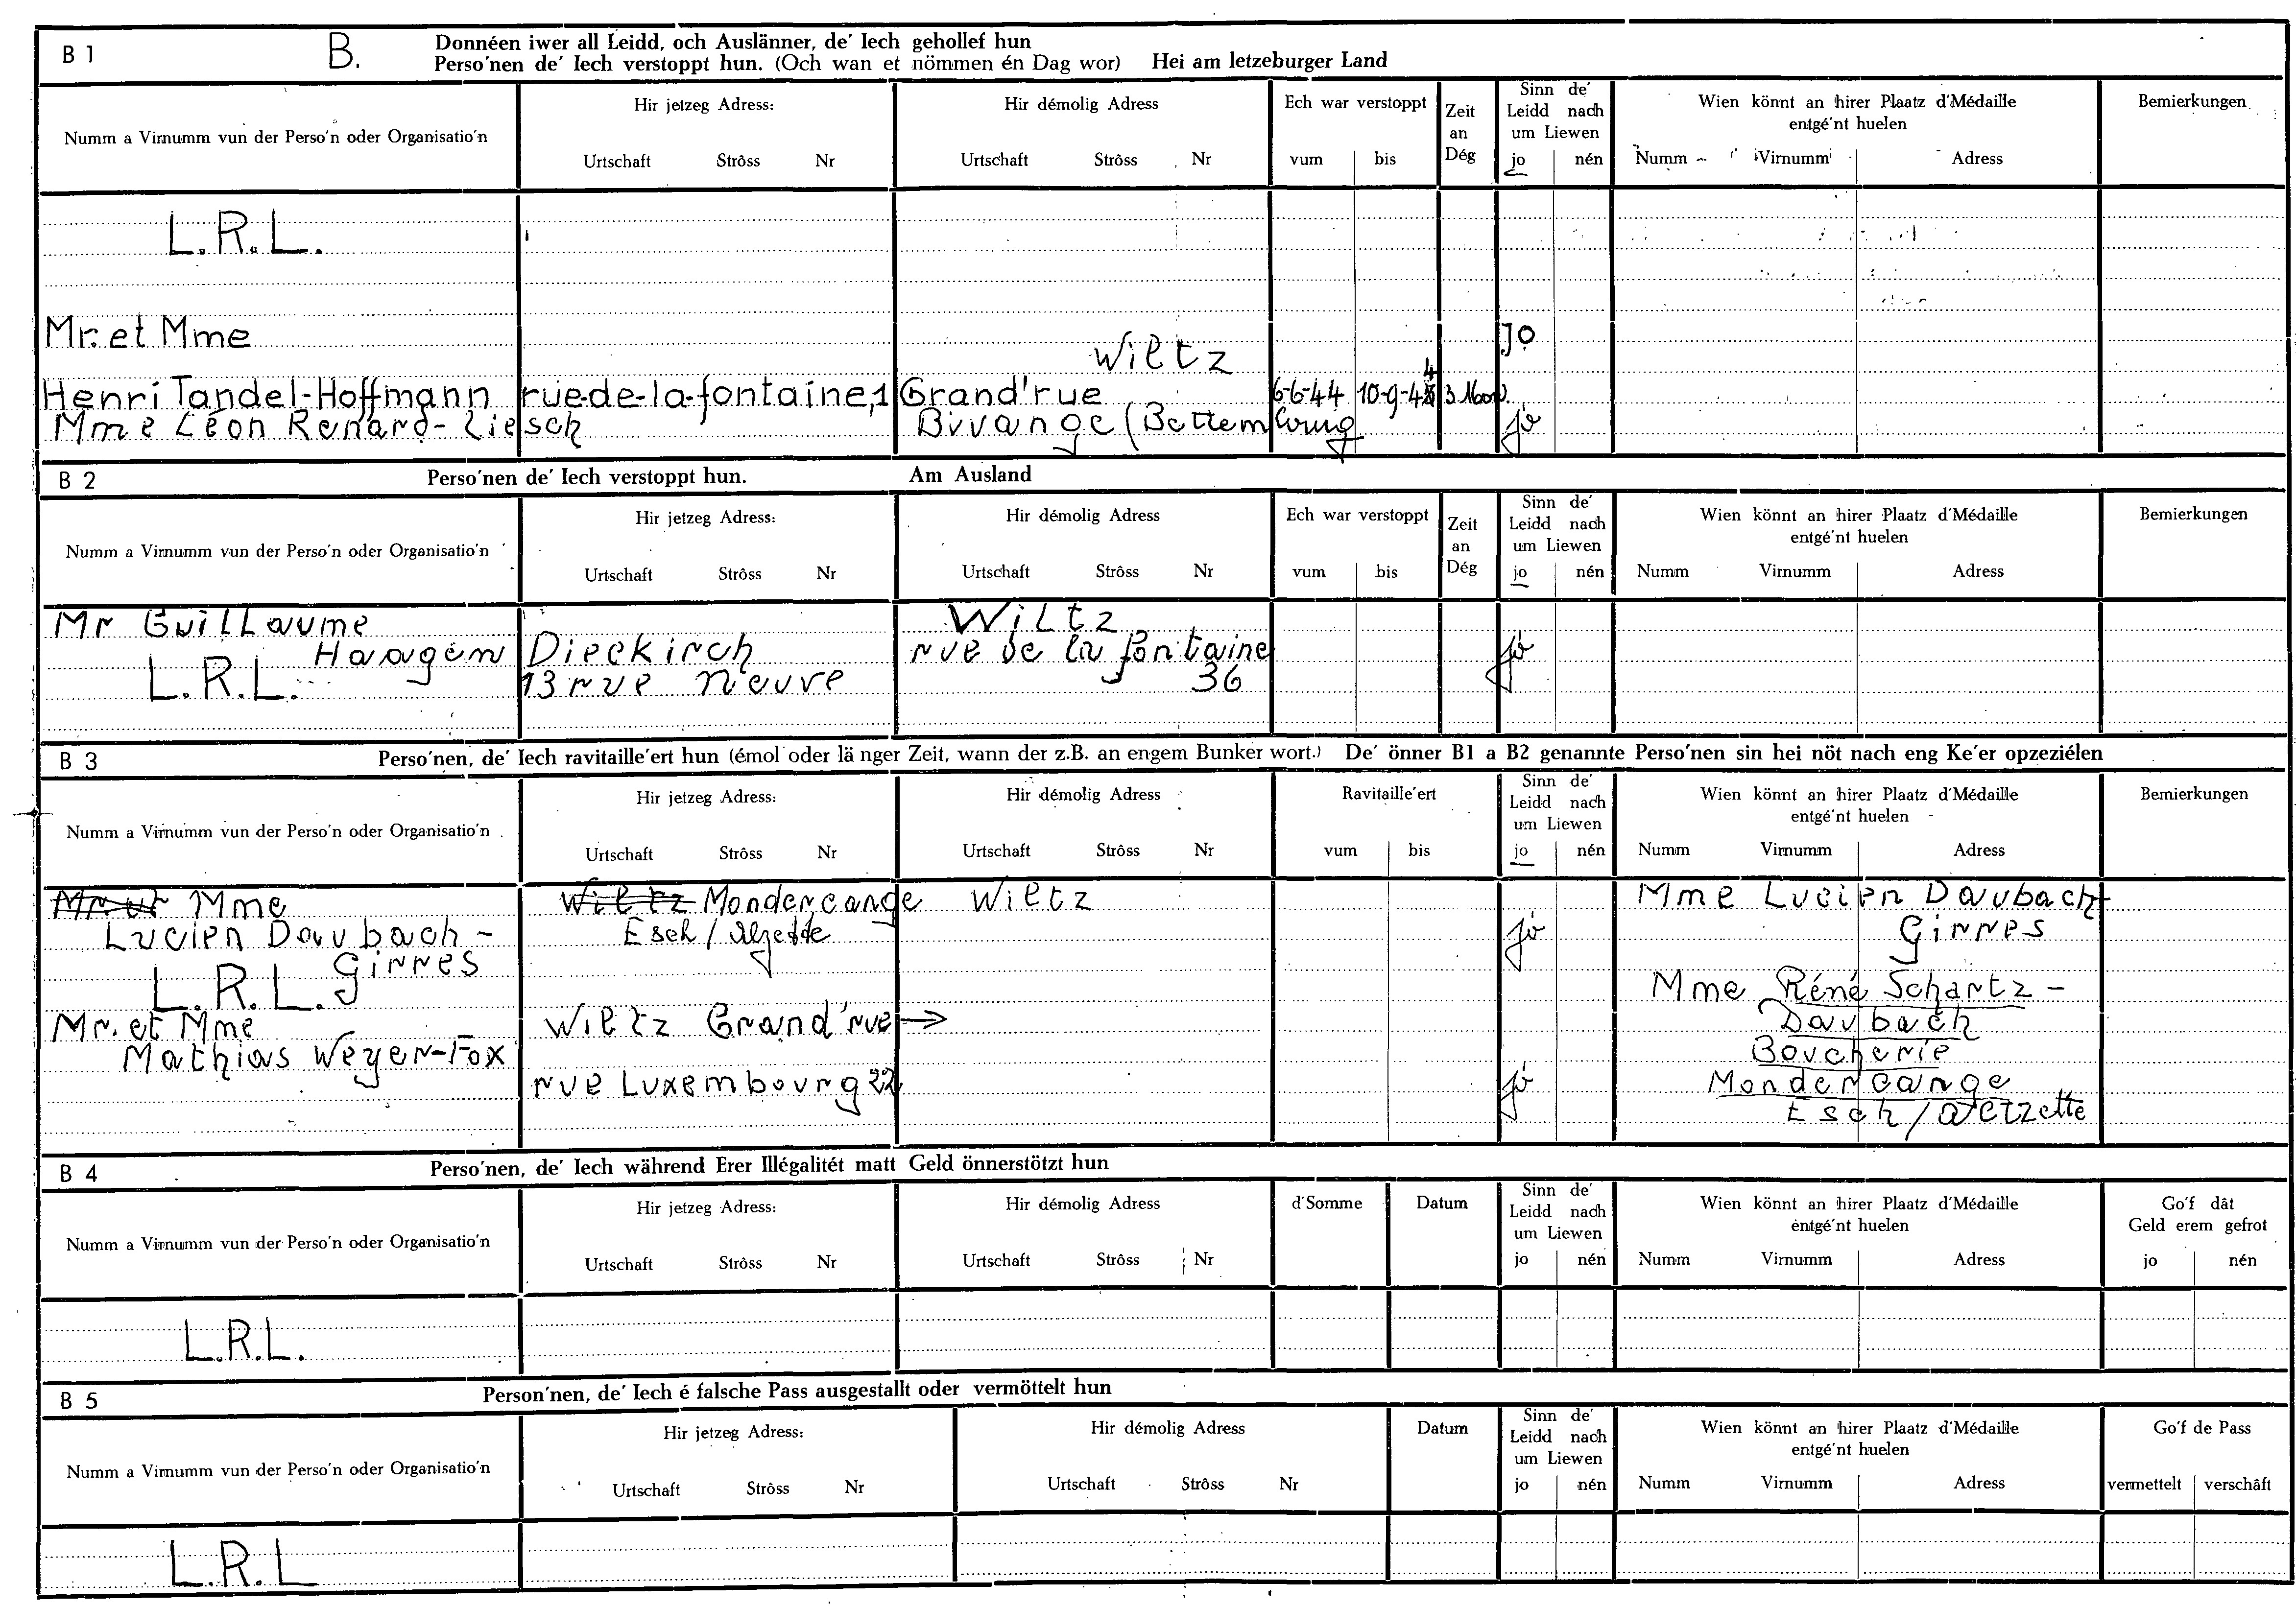 B 1 B. Donnéen iwer all Leidd, och Auslänner, de' Iech gehollef hun
Perso'nen de' Iech verstoppt hun. (Och wan et nömmen én Dag wor) Hei am letzeburger Land
Numm a Virnumm vun der Perso'n oder Organisatio'n
Hir jetzeg Adress:
Urtschaft Strôss Nr
Hir démolig Adress
Urtschaft Strôss Nr
Ech war verstoppt
vum bis
Zeit
an
Dég
Sinn de'
Leidd nach
um Liewen
jo nén
Wien könnt an hirer Plaatz d'Médaille
entgé'nt huelen
Numm Virnumm Adress
Bemierkungen
L.R.L.
Mr. et Mme JO
Wiltz
Henri Tandel-Hoffmann rue-de-la-fontaine,1 Grand'rue 6-6-44 10-9-44
Mme Léon Renard-Liesch Bivange (Bettemburg jo
B 2 Perso'nen de' Iech verstoppt hun. Am Ausland
Numm a Virnumm vun der Perso'n oder Organisatio'n
Hir jetzeg Adress:
Urtschaft Strôss Nr
Hir démolig Adress
Urtschaft Strôss Nr
Ech war verstoppt
vum bis
Zeit
an
Dég
Sinn de'
Leidd nach
um Liewen
jo nén
Wien könnt an hirer Plaatz d'Médaille
entgé'nt huelen
Numm Virnumm Adress
Bemierkungen
Mr Guillaume Wiltz
Haagen Dieckirch rue de la fontaine jo
L.R.L. 13 rue neuve 36
B 3 Perso'nen, de' Iech ravitaille'ert hun (émol oder länger Zeit, wann der z.B. an engem Bunker wort.) De' önner B1 a B2 genannte Perso'nen sin hei nöt nach eng Ke'er opzeziélen
Numm a Virnumm vun der Perso'n oder Organisatio'n
Hir jetzeg Adress:
Urtschaft Strôss Nr
Hir démolig Adress
Urtschaft Strôss Nr
Ravitaille'ert
vum bis
Sinn de'
Leidd nach
um Liewen
jo nén
Wien könnt an hirer Plaatz d'Médaille
entgé'nt huelen
Numm Virnumm Adress
Bemierkungen
Mr et Mme Wiltz Mondercange Wiltz Mme Lucien Daubach-
Lucien Daubach- Esch/Alzette jo Ginres
Ginres
L.R.L. Mme Réné Schartz-
Mr. et Mme Wiltz Grand'rue → Daubach
Mathias Weyer-Fox Boucherie
rue Luxembourg 22 jo Mondercange
Esch/Alzette
B 4 Perso'nen, de' Iech während Erer Illégalitét matt Geld önnerstötzt hun
Numm a Virnumm vun der Perso'n oder Organisatio'n
Hir jetzeg Adress:
Urtschaft Strôss Nr
Hir démolig Adress
Urtschaft Strôss Nr
d'Somme
Datum
Sinn de'
Leidd nach
um Liewen
jo nén
Wien könnt an hirer Plaatz d'Médaille
entgé'nt huelen
Numm Virnumm Adress
Go'f dât
Geld erem gefrot
jo nén
L.R.L.
B 5 Person'nen, de' Iech é falsche Pass ausgestallt oder vermöttelt hun
Numm a Virnumm vun der Perso'n oder Organisatio'n
Hir jetzeg Adress:
Urtschaft Strôss Nr
Hir démolig Adress
Urtschaft Strôss Nr
Datum
Sinn de'
Leidd nach
um Liewen
jo nén
Wien könnt an hirer Plaatz d'Médaille
entgé'nt huelen
Numm Virnumm Adress
Go'f de Pass
vermettelt verschâft
L.R.L